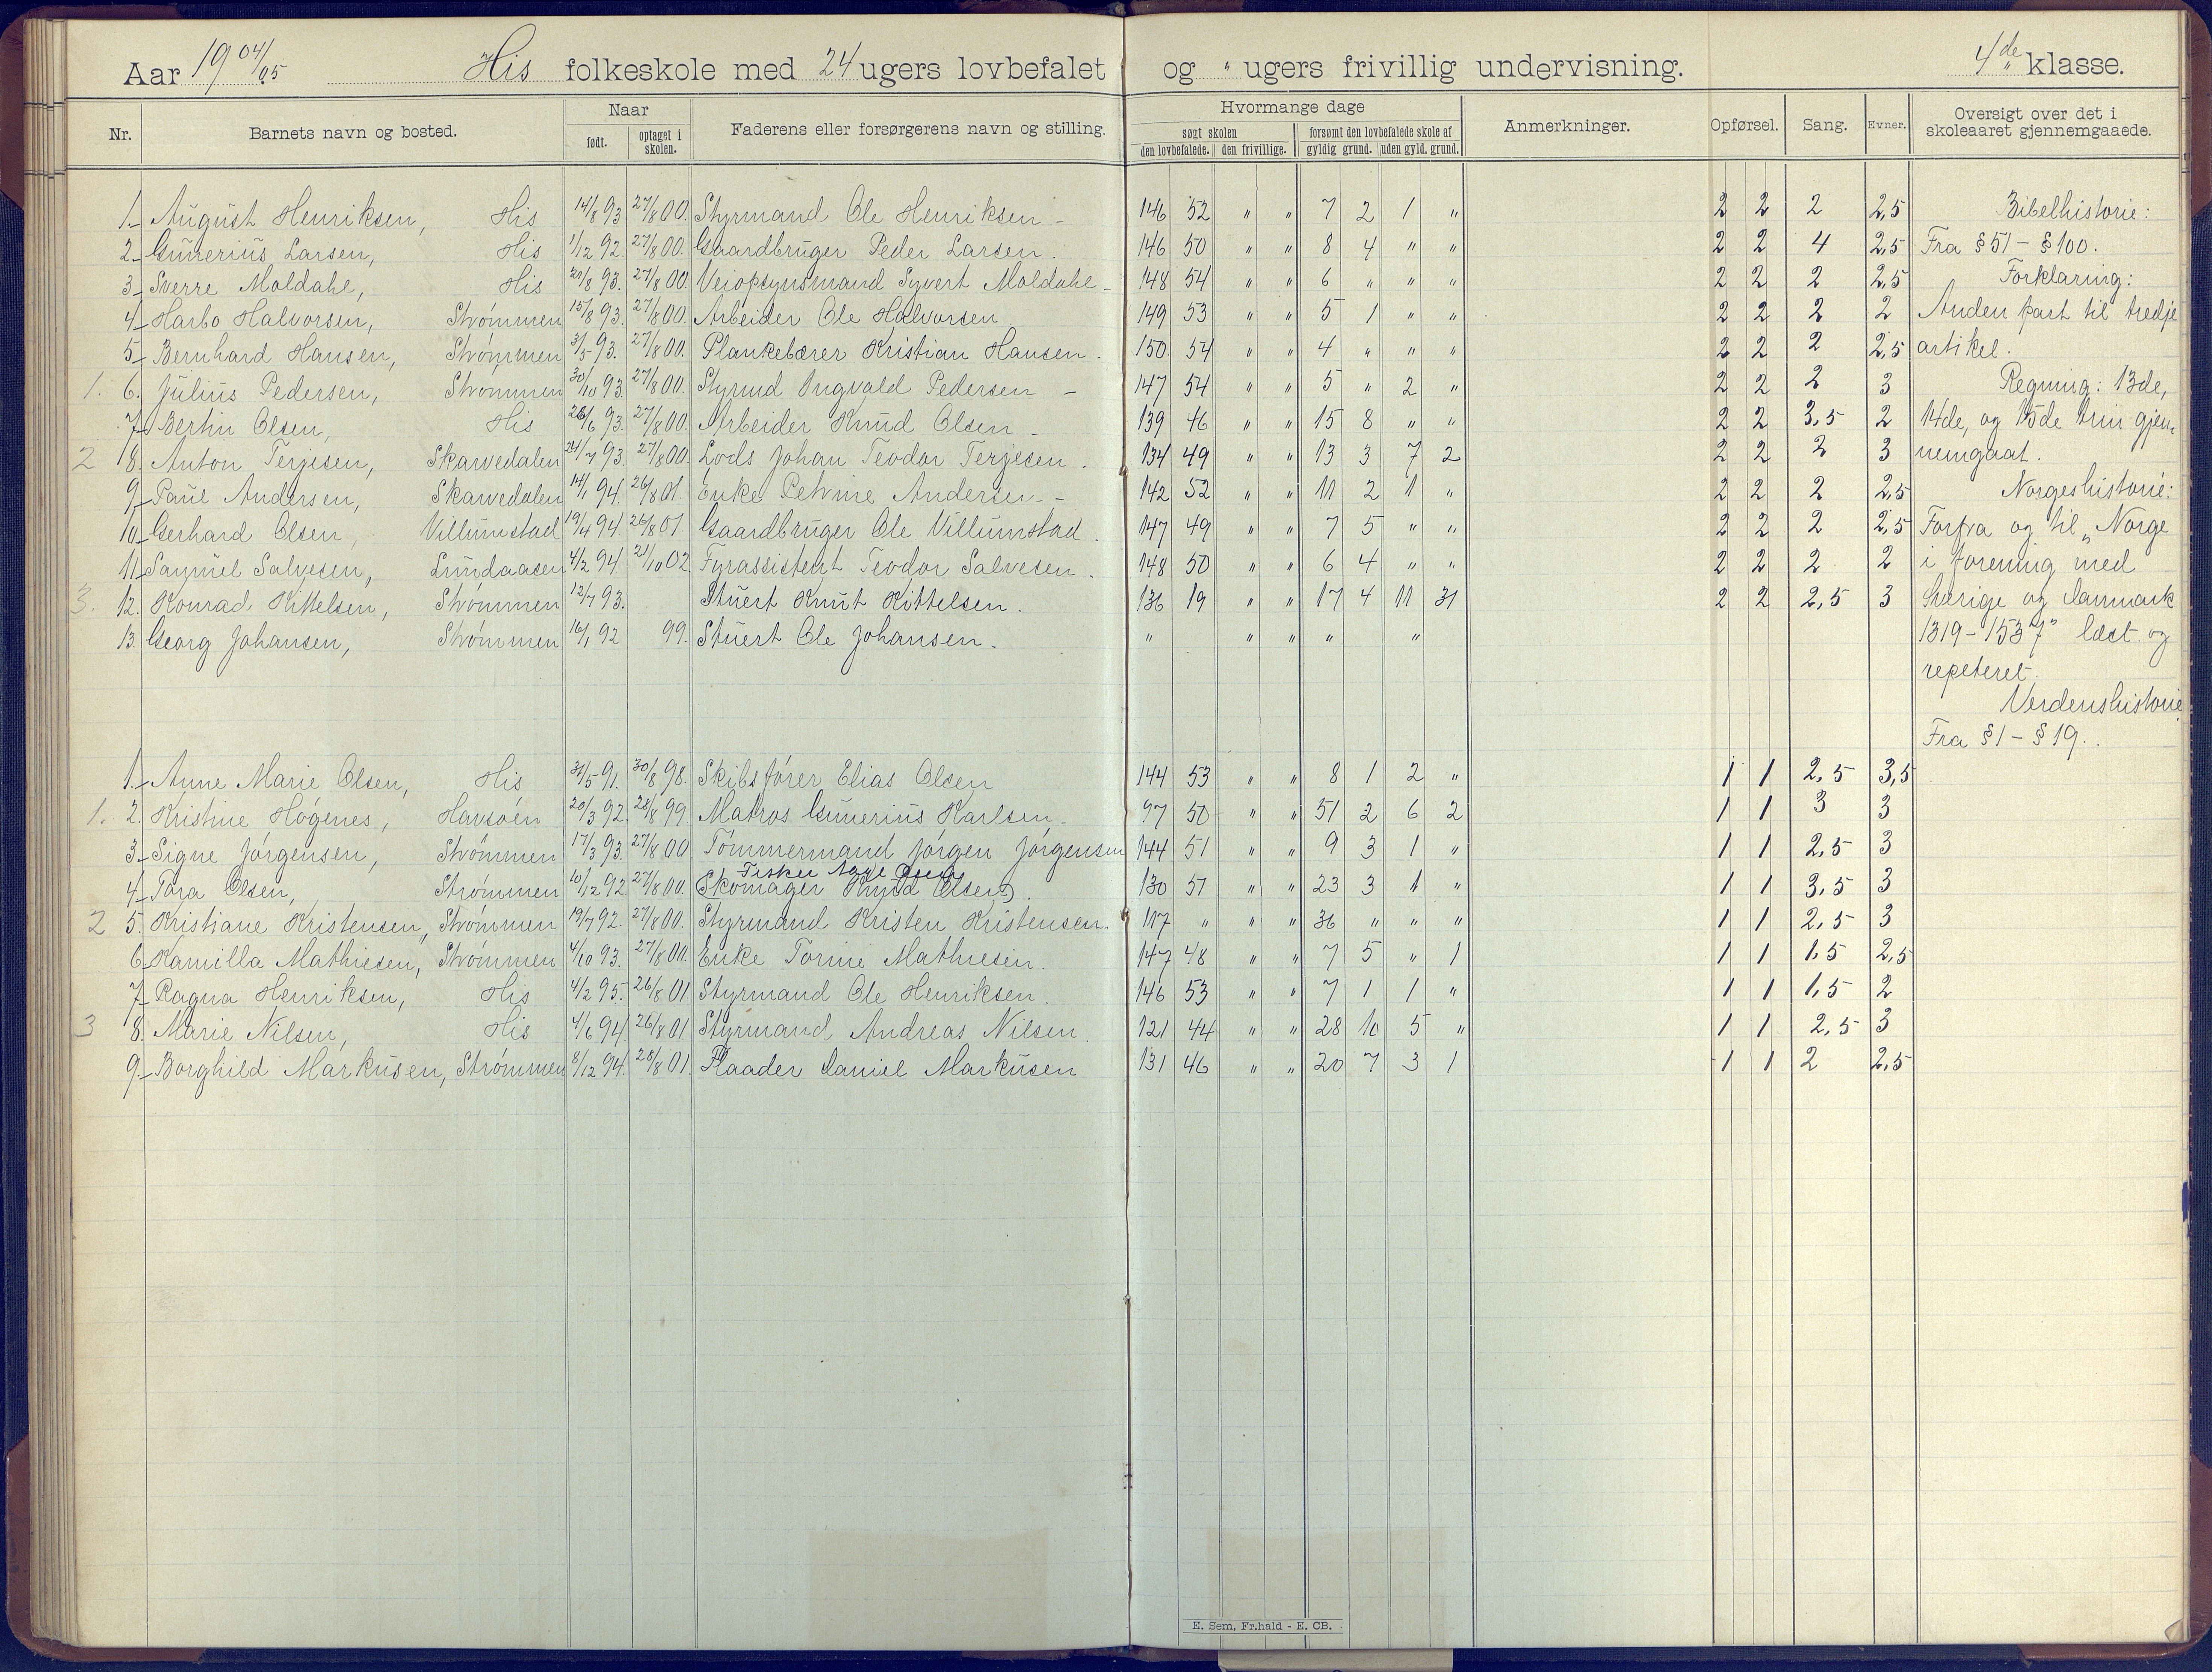 Aar 19 04/05 His folkeskole med 24 ugers lovbefalet og " ugers frivillig undervisning. 4de klasse.
Nr. Barnets navn og bosted. Naar født. optaget i skolen. Faderens eller forsørgerens navn og stilling. Hvormange dage søgt skolen den lovbefalede. den frivillige. forsømt den lovbefalede skole af gyldig grund. uden gyld. grund. Anmerkninger. Opførsel. Sang. Evner. Oversigt over det i skoleaaret gjennemgaaede.
1. August Henriksen, His 14/8 93 27/8 00. Styrmand Ole Henriksen - 146 52 " " 7 2 1 " 2 2 2 2,5 Bibelhistorie:
2. Gunerius Larsen, His 1/12 92. 27/8 00. Gaardbruger Peder Larsen. 146 50 " " 8 4 " " 2 2 4 2,5 Fra § 51 - § 100.
3. Sverre Moldahe, His 8 93. 27/8 00. Veiopsynsmand Syvert Moldahe - 148 54 " " 6 " " " 2 2 2 2,5 Forklaring:
4. Harbo Halvorsen, Strømmen 15/8 93. 27/8 00. Arbeider Ole Halvorsen 149 53 " " 5 1 " " 2 2 2 2 Anden part til tredje
5. Bernhard Hansen, Strømmen 3/5 93. 27/8 00. Plankebærer Kristian Hansen. 150. 54 " " 4 " " " 2 2 2 2,5 artikel.
1. 6. Julius Pedersen, Strømmen 30/10 93. 27/8 00. Styrmd Ingvald Pedersen - 147 54 " " 5 " 2 " 2 2 2 3 Regning: 13de,
7. Bertin Olsen, His 26/6 93. 27/8 00. Arbeider Knud Olsen - 139 46 " " 15 8 " " 2 2 3,5 2 14de, og 15de trin gjen-
2 8. Anton Terjesen, Skarvedalen 24/7 93. 27/8 00. Lods Johan Teodor Terjesen. 134 49 " " 13 3 7 2 2 2 2 3 nemgaat.
9. Paul Andersen, Skarvedalen 14/1 94. 26/8 01. Enke Petrine Andersen - 142 52 " " 11 2 1 " 2 2 2 2,5 Norgeshistorie:
10. Gerhard Olsen, Villumstad 19/4 94. 26/8 01. Gaardbruger Ole Villumstad. 147 49 " " 7 5 " " 2 2 2 2,5 Forfra og til "Norge
11. Samuel Salvesen, Lundaasen 4/2 94. 21/10 02. Fyrassistent Teodor Salvesen. 148 50 " " 6 4 " " 2 2 2 2 i forening med
3. 12. Konrad Kittelsen, Strømmen 12/7 93. Stuert Knut Kittelsen. 136 19 " " 17 4 11 31 2 2 2,5 3 Sverige og Danmark
13. Georg Johansen, Strømmen 16/1 92 99. Stuert Ole Johansen. " " " " " 1319-1537" læst og
repeteret.
Verdenshistorie
Fra § 1 - § 19.
1. Anne Marie Olsen, His 31/5 91. 30/8 98. Skibsfører Elias Olsen 144 53 " " 8 1 2 " 1 1 2,5 3,5
1. 2. Kristine Høgenes, Havsøen 20/3 92. 28/8 99 Matros Gunerius Karlsen - 97 50 " " 51 2 6 2 1 1 3 3
3. Signe Jørgensen, Strømmen 17/3 93. 27/8 00 Tømmermand Jørgen Jørgensen 144 51 " " 9 3 1 " 1 1 2,5 3
Fisker
4. Tora Olsen, Strømmen 10/12 92 27/8 00. (Skomager Knud Olsen). 130 51 " " 23 3 1 " 1 1 3,5 3
2 5. Kristiane Kristensen, Strømmen 19/7 92. 27/8 00. Styrmand Kristen Kristensen. 117 " " " 36 " " " 1 1 2,5 3
6. Kamilla Mathiesen, Strømmen 4/10 93. 27/8 00. Enke Torine Mathiesen. 147 48 " " 7 5 " 1 1 1 1,5 2,5
7. Ragna Henriksen, His 4/2 95. 26/8 01 Styrmand Ole Henriksen. 146 53 " " 7 1 1 " 1 1 1,5 2
3 8. Marie Nilsen, His 4/6 94. 26/8 01. Styrmand Andreas Nilsen. 121 44 " " 28 10 5 " 1 1 2,5 3
9. Borghild Markusen, Strømmen 8/12 94. 28/8 01. Flaader Daniel Markusen 131 46 " " 20 7 3 1 1 1 2 2,5
E. Sem, Fr.hald - E. CB.